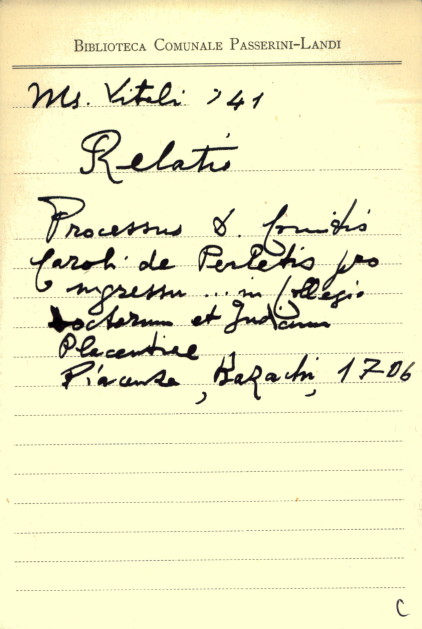 BIBLIOTECA COMUNALE PASSERINI-LANDI
Ms. Vitali 741
Relatio
Processus D. Comitis
Caroli de Perletis pro
ingressu ... in Collegio
Doctorum et Judicum
Placentiae
Piacenza, Bazachi, 1706
C